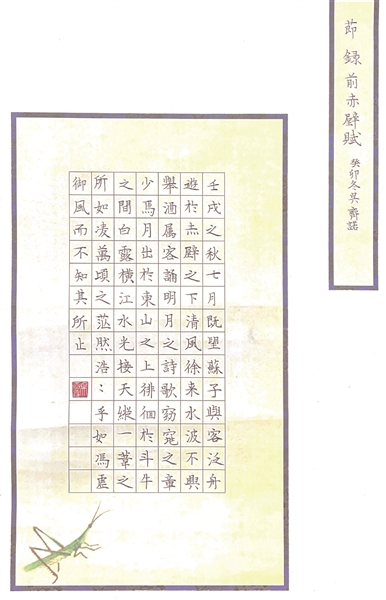 莭錄前赤壁賦
癸卯冬吳
壬戌之秋七月既望蘇子與客泛舟
遊於赤壁之下清風徐来水波不興
舉酒属客誦明月之詩歌窈窕之章
少焉月出於東山之上徘徊於斗牛
之間白露橫江水光接天縱一葦之
所如凌萬頃之茫然浩：乎如馮虛
御風而不知其所止